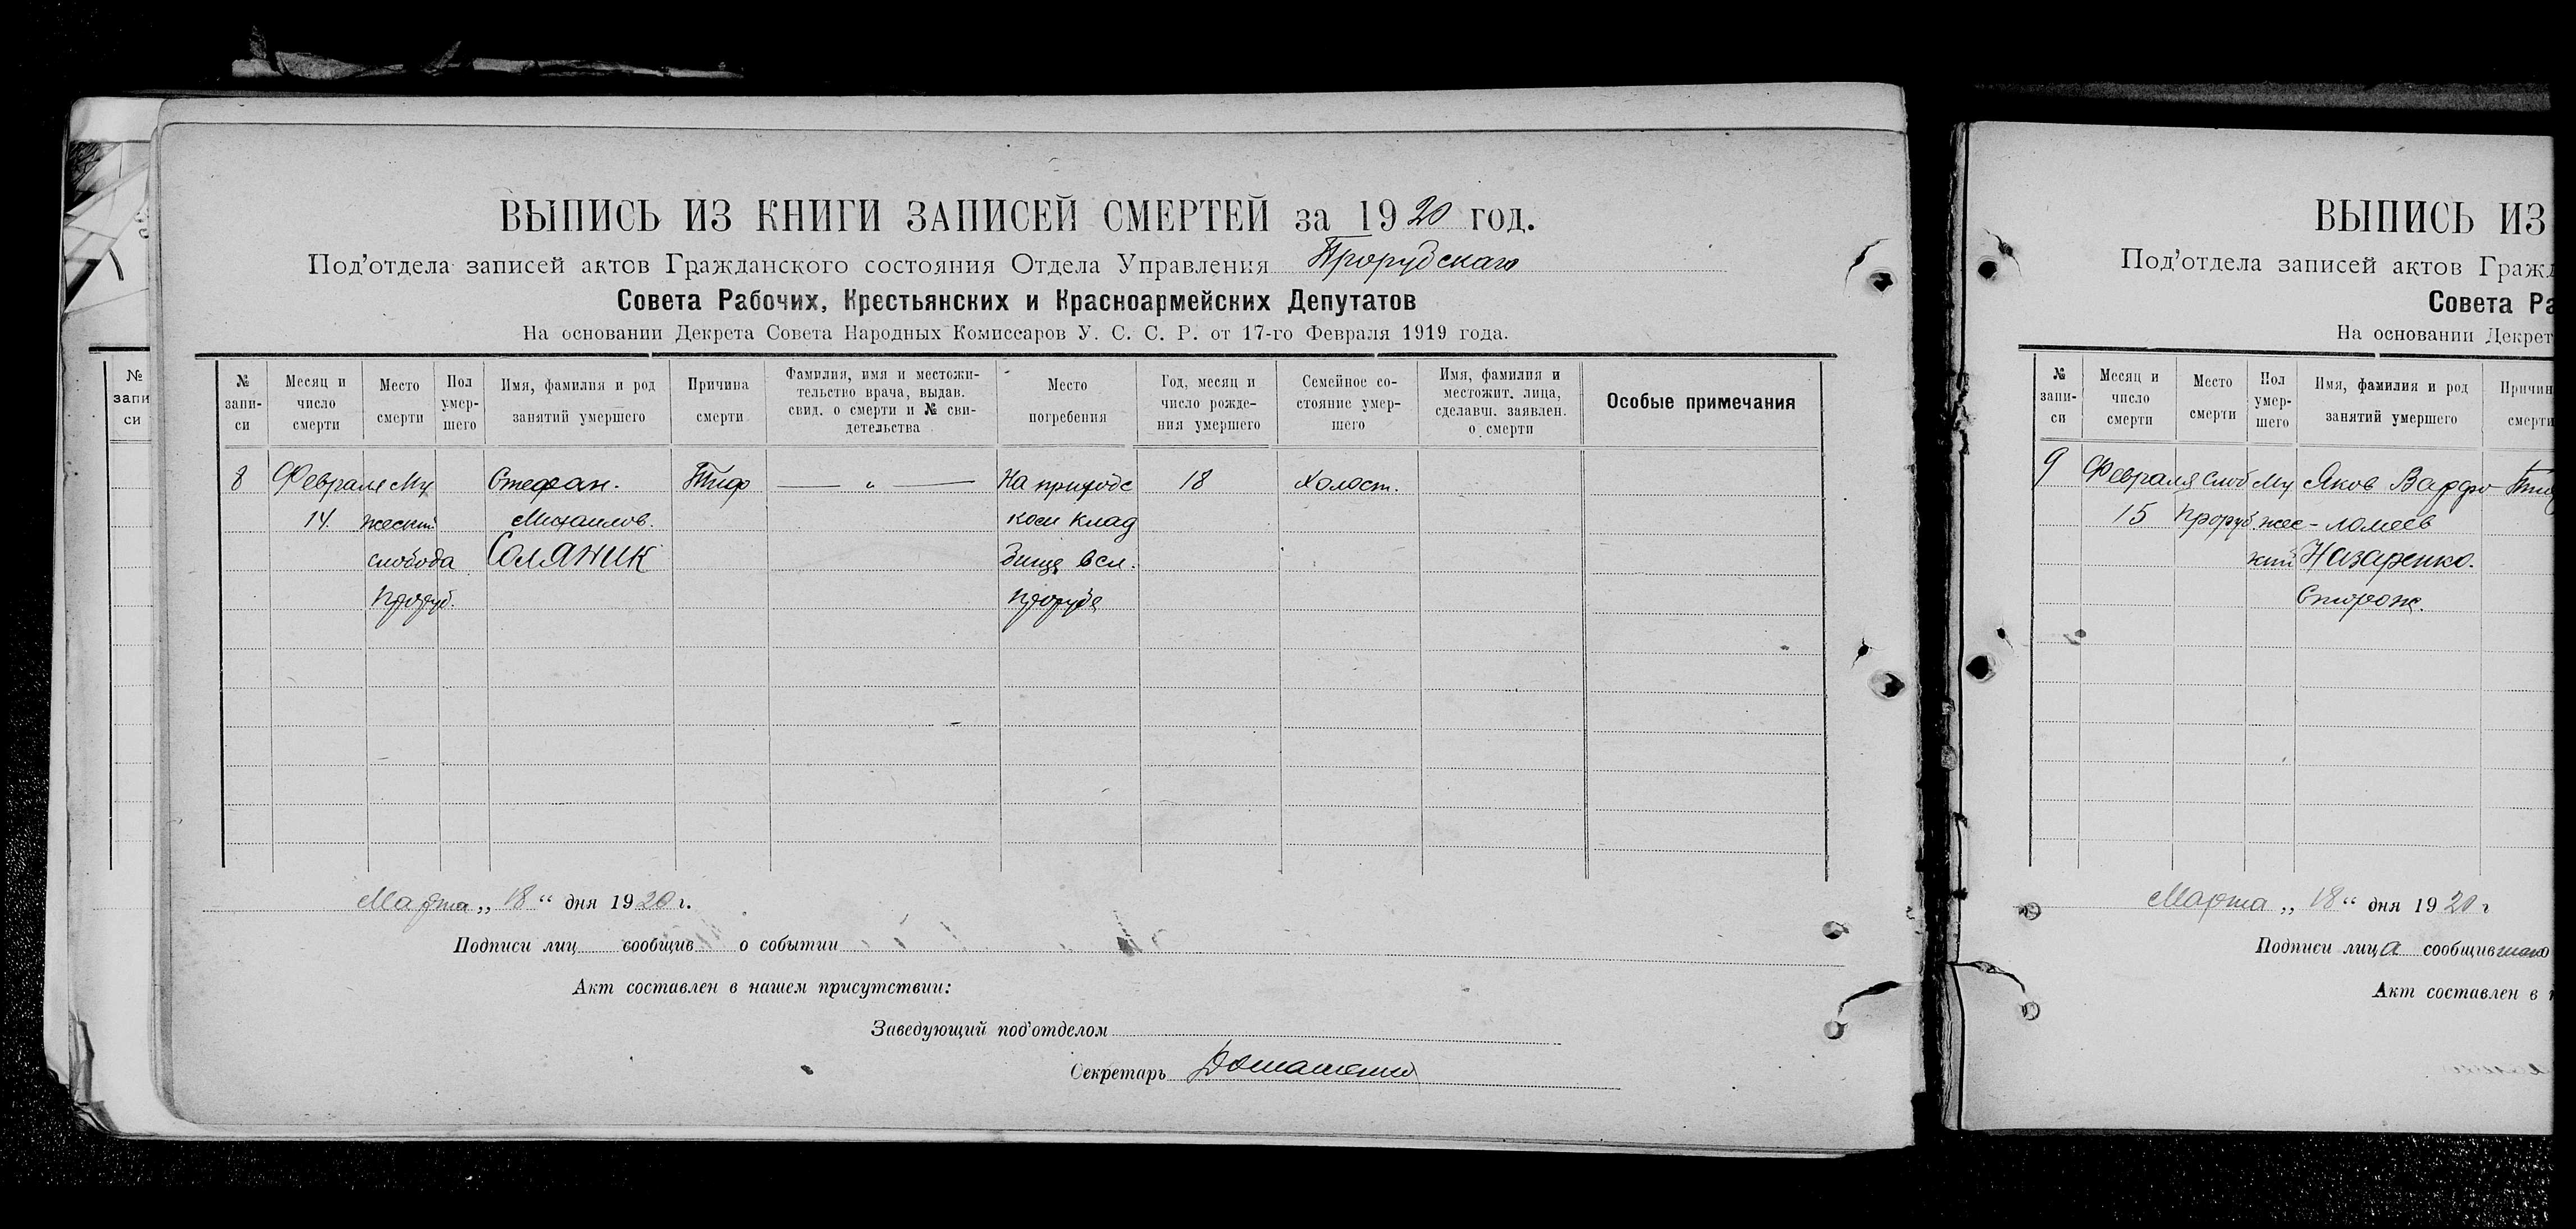 ВЫПИСЬ ИЗ КНИГИ ЗАПИСЕЙ СМЕРТЕЙ за 1920 год.
Под'отдела записей актов Гражданского состояния Отдела Управления Прорубскаго
Совета Рабочих, Крестьянских и Красноармейских Депутатов
На основании Декрета Совета Народных Комиссаров У. С. С. Р. от 17-го Февраля 1919 года.
№ запи- си
Месяц и число смерти
Место смерти
Пол умер- шего
Имя, фамилия и род занятий умершего
Причина смерти
Фамилия, имя и местожи- тельство врача, выдав. свид. о смерти и № сви- детельства
Место погребения
Год, месяц и число рожде- ния умершего
Семейное со- стояние умер- шего
Имя, фамилия и местожит. лица, сделавш. заявлен. о смерти
Особые примечания
8 Февраля Му Стефан. Тиф — „ — На приходс 18 Холост.
14 жеский Михаилов. ком клад
слобода Соляник бище в сл.
Проруб. Прорубя
Марта „ 18 “ дня 1920 г.
Подписи лиц сообщив о событии
Акт составлен в нашем присутствии:
Заведующий под'отделом
Секретарь
№ запи си
ВЫПИСЬ ИЗ
Под'отдела записей актов Гражд
Совета Ра
На основании Декрет
№ запи- си
Месяц и число смерти
Место смерти
Пол умер- шего
Имя, фамилия и род занятий умершего
Причин смерти
9 Февраля Слоб Му Яков Варфо- Тиф
15 Проруб жес- ломеев
кий Назаренко.
Сторож.
Марта „ 18 “ дня 1920 г
Подписи лица сообщившаго
Акт составлен в н